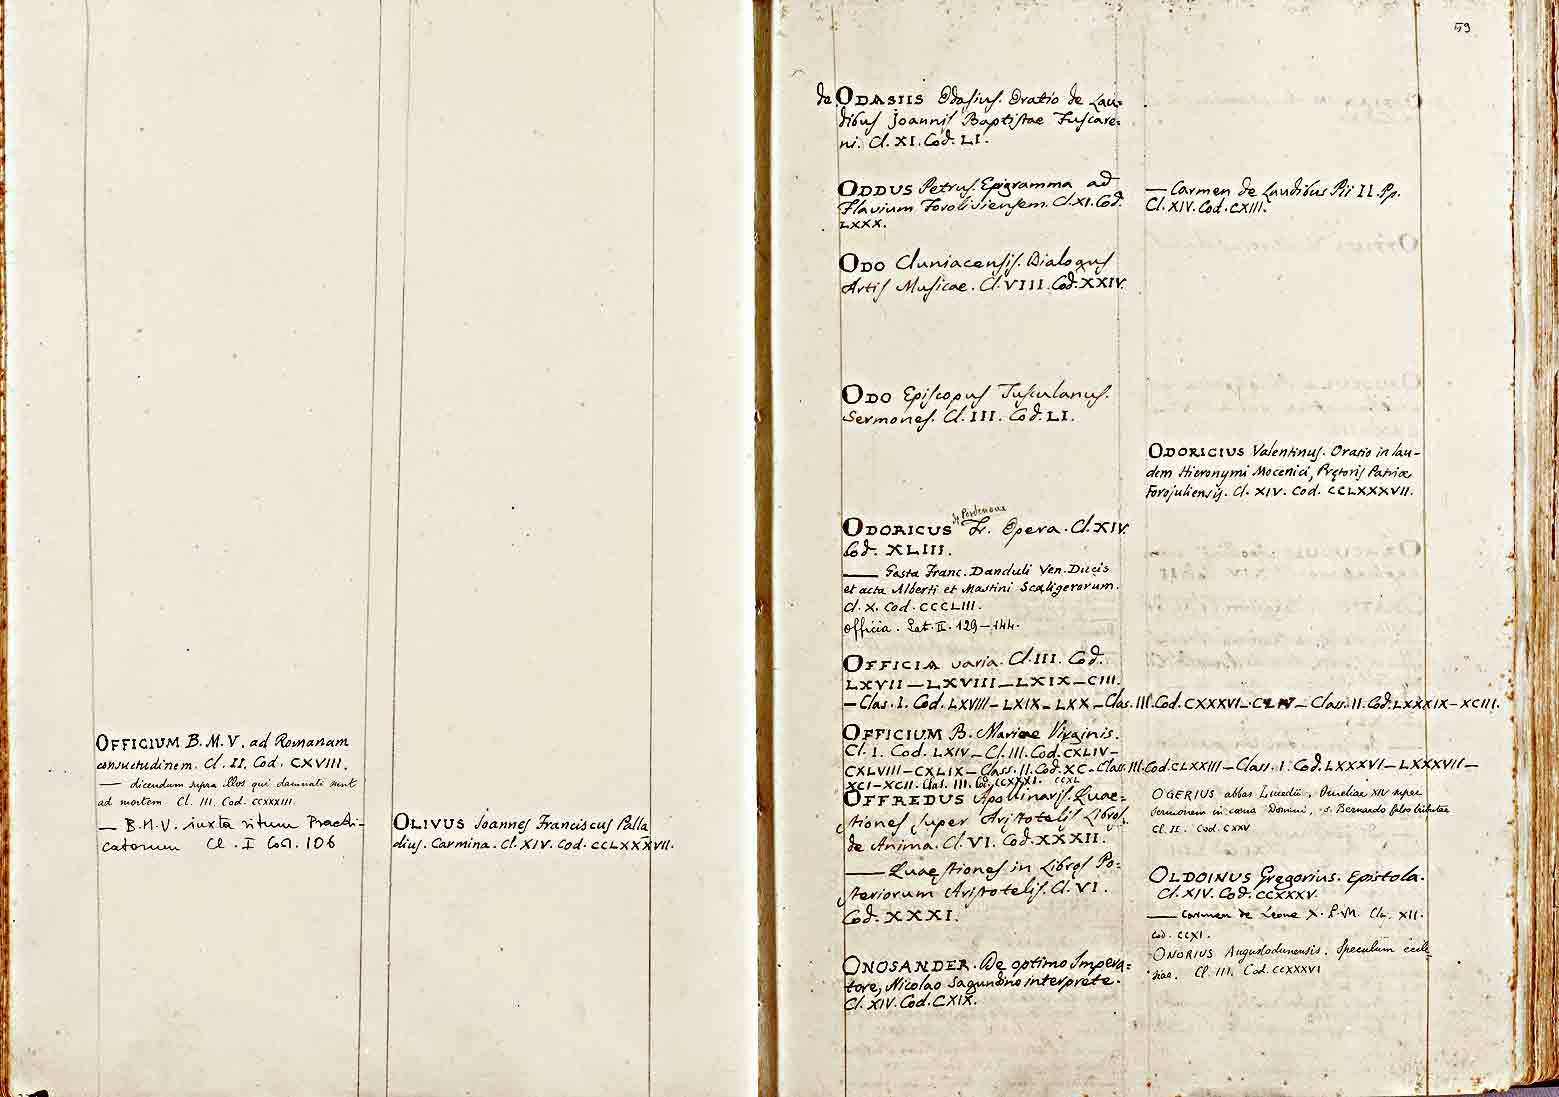 OFFICIUM B. M. V. ad Romanam
consuetudinem. Cl. II. Cod. CXVIII.
— dicendum supra illos qui damnati sunt
ad mortem Cl. III. Cod. CCXXXIII
— B. M. V. iuxta ritum Praedi-
catorum Cl. I Cod. 106
OLIVUS Joannes Franciscus Palla
dius. Carmina. Cl. XIV. Cod. CCLXXXVII.
59
de ODASIIS Odasius. Oratio de Lau=
dibus Joannis Baptistae Fuscare=
ni. Cl. XI. Cod. LI.
ODDUS Petrus. Epigramma ad
Flavium Foroliviensem. Cl. XI. Cod.
LXXX.
ODO Cluniacensis. Dialogus
Artis Musicae. Cl. VIII. Cod. XXIV.
ODO Episcopus Tusculanus.
Sermones. Cl. III. Cod. LI.
de Pordenone
ODORICUS Fr. Opera. Cl. XIV.
Cod. XLIII.
— Gesta Franc. Danduli Ven. Ducis
et acta Alberti et Mastini Scaligerorum.
Cl. X. Cod. CCCLIII.
Officia. Lat. II. 129–144.
OFFICIA varia. Cl. III. Cod.
LXVII — LXVIII — LXIX — CIII.
— Clas. I. Cod. LXVIII — LXIX — LXX — Clas. III. Cod. CXXXVI — CLIV — Class. II. Cod. LXXXIX — XCIII.
OFFICIUM B. Mariae Virginis.
Cl. I. Cod. LXIV — Cl. III. Cod. CXLIV —
CXLVIII — CXLIX — Class. II. Cod. XC — Class. III. Cod. CLXXIII — Class. I. Cod. LXXXVI — LXXXVII —
XCI — XCII. Clas. III. Cod. CCXXXI. CCXL
OFFREDUS Apollinaris. Quae=
stiones super Aristotelis Libros
de Anima. Cl. VI. Cod. XXXII.
— Quaestiones in Libros Po=
steriorum Aristotelis. Cl. VI.
Cod. XXXI.
ONOSANDER. De optimo Impera=
tore, Nicolao Sagundino interprete.
Cl. XIV. Cod. CXIX.
— Carmen de Laudibus Pii II. Pp.
Cl. XIV. Cod. CXIII.
ODORICIUS Valentinus. Oratio in lau-
dem Hieronymi Mocenici, Prętoris Patriæ
Forojuliensis. Cl. XIV. Cod. CCLXXXVII.
OGERIUS abbas Lucedii, Omeliae XIV super
sermonem in coena Domini, s. Bernardo falso tributae
Cl. II. Cod. CXXV
OLDOINUS Gregorius. Epistola.
Cl. XIV. Cod. CCXXXV.
— Carmen de Leone X. P. M. Cla. XII.
Cod. CCXI.
ONORIUS Augustodunensis. Speculum eccle
siae. Cl. III. Cod. CCXXXVI